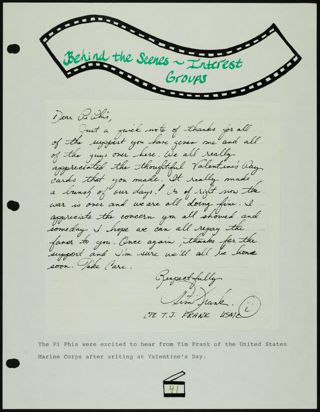 Behind the Scenes ~ Interest
Groups
Dear Pi Phis,
Just a quick note of thanks for all
of the support you have given me and all
of the guys over here. We all really
appreciated the thoughtful Valentine's Day
cards that you made. It really made
a bunch of our days! As of right now the
war is over and we are all doing fine. I
appreciate the concern you all showed and
someday I hope we can all repay the
favor to you. Once again, thanks for the
support and I'm sure we'll all be home
soon. Take Care.
Respectfully,
Tim Frank
T.J. FRANK USMC
The Pi Phis were excited to hear from Tim Frank of the United States
Marine Corps after writing at Valentine's Day.
41